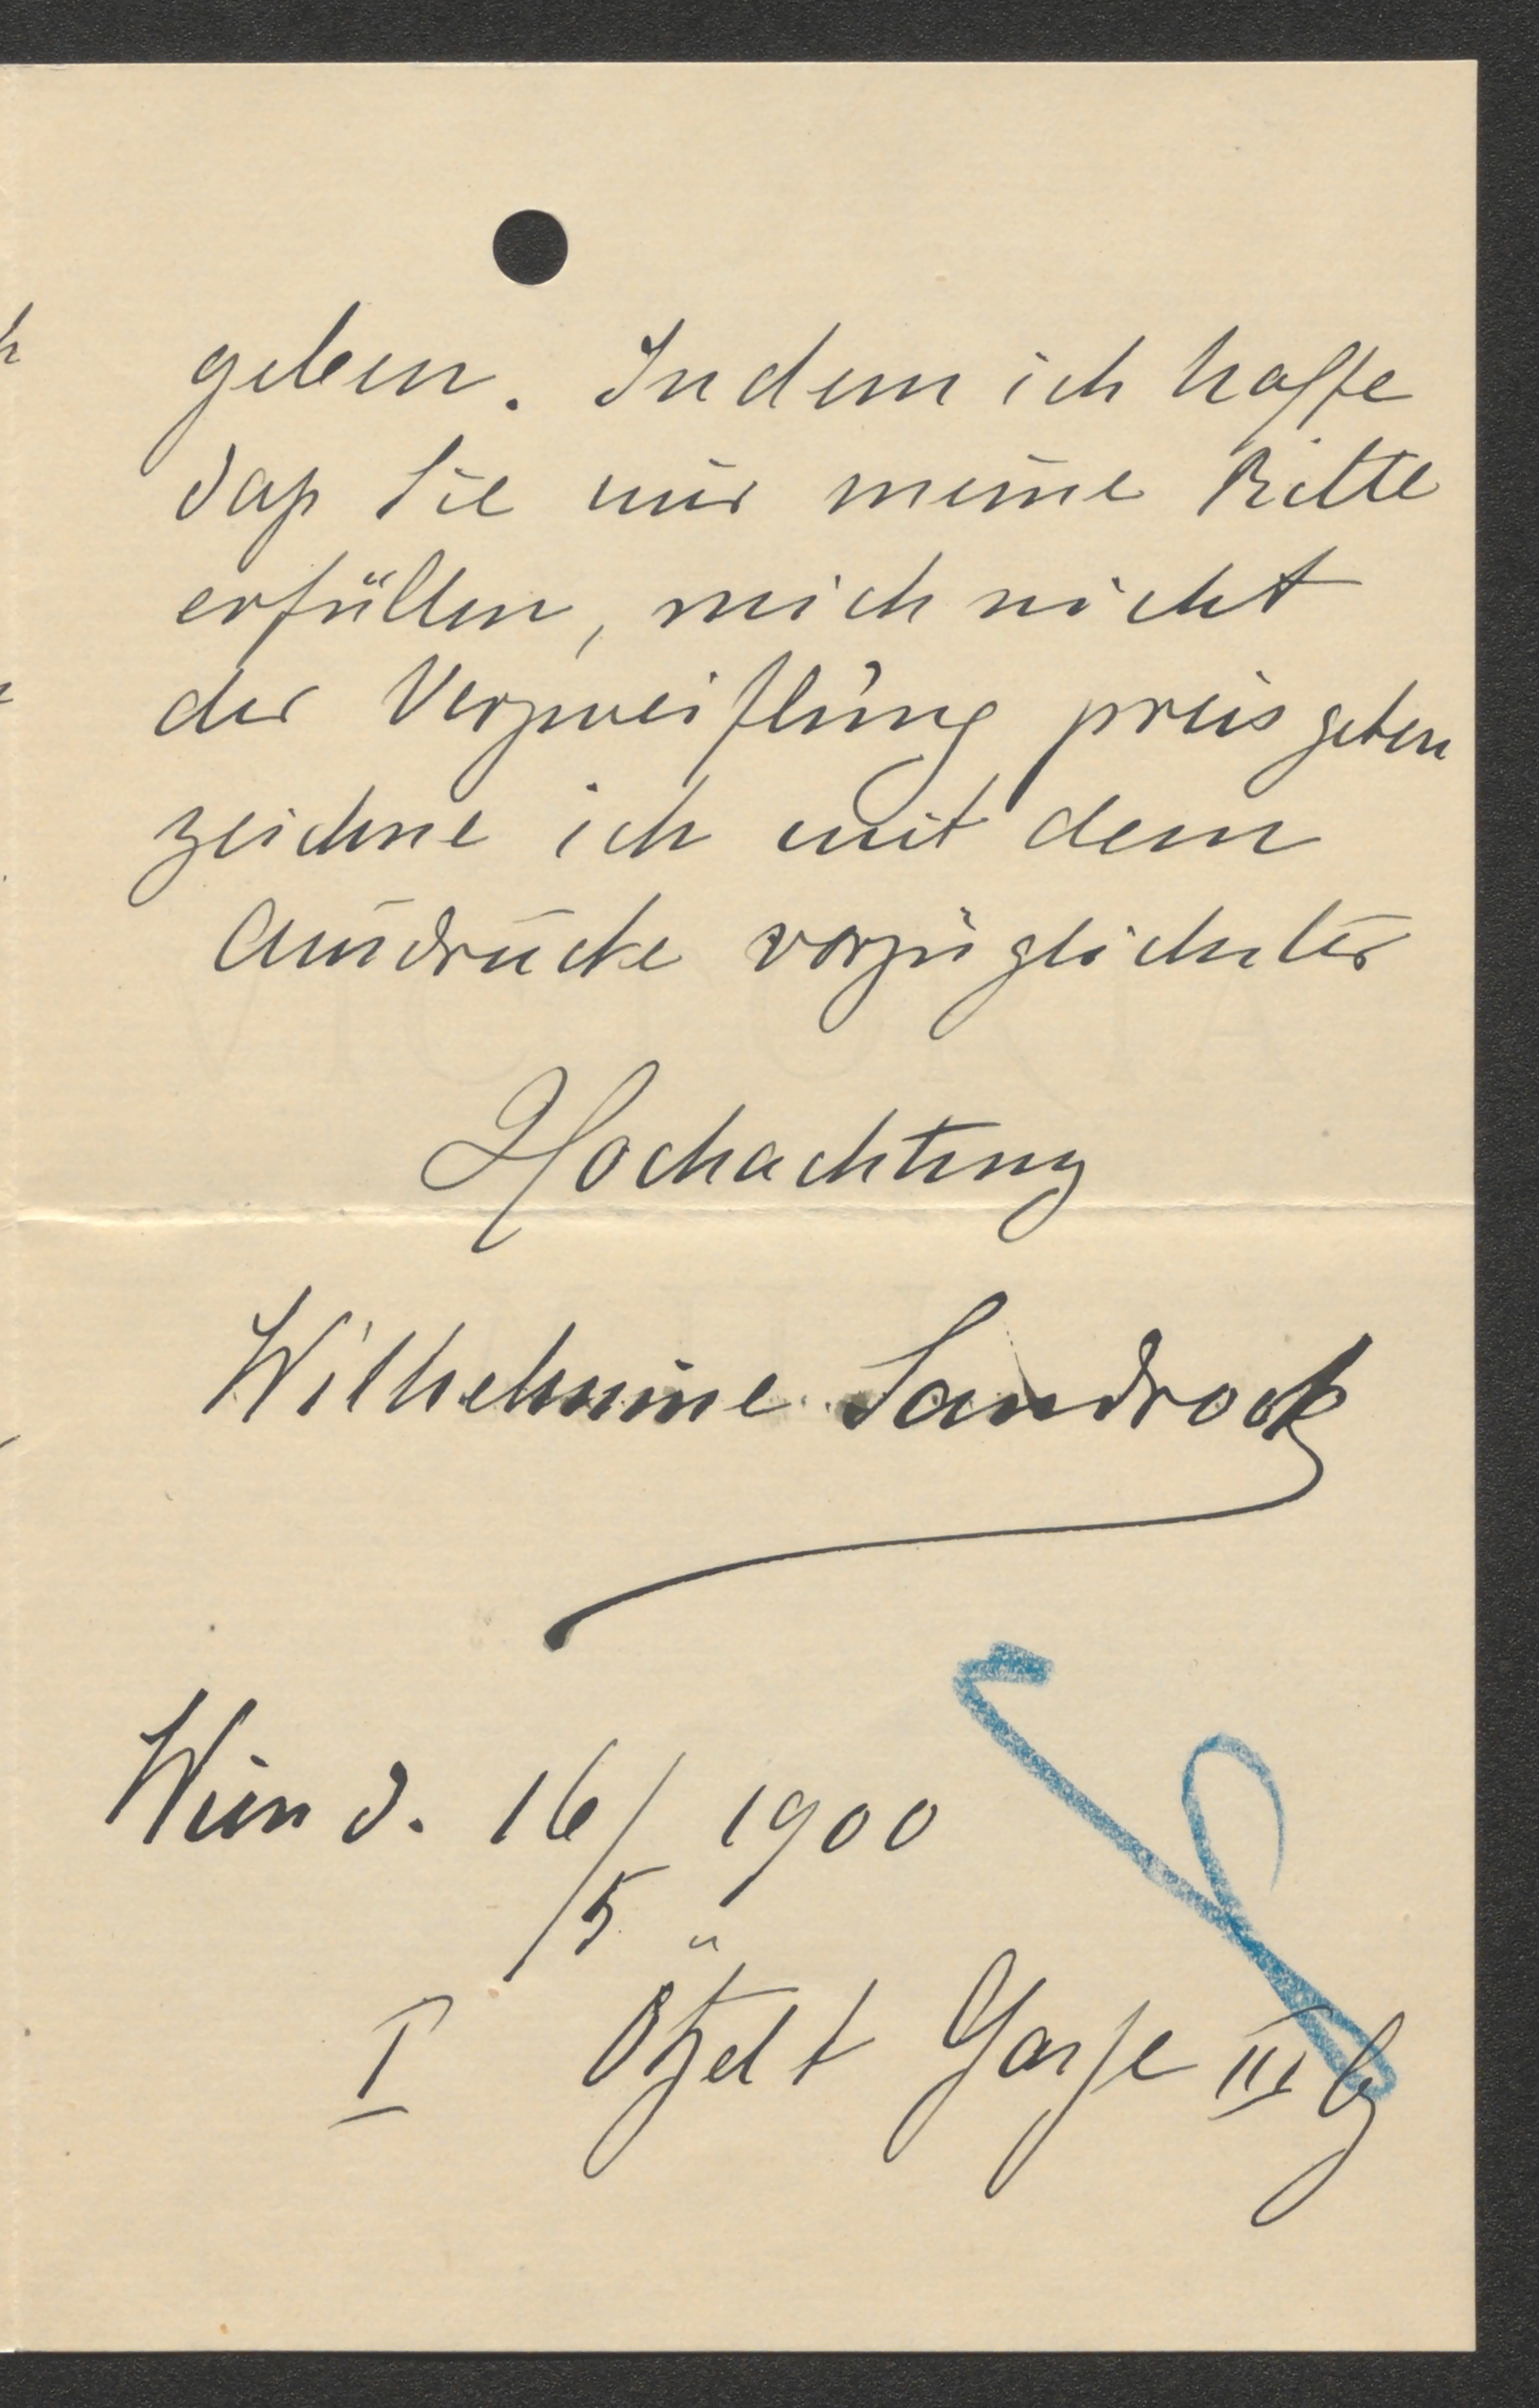 geben. Indem ich hoffe
daß Sie mir meine Bitte
erfüllen, mich nicht
der Verzweiflung preis geben
zeichne ich mit dem
Ausdrucke vorzüglichster
Hochachtung
Wilhelmine Sandrock
Wien d. 16/5 1900
I Ötzelt Gasse III